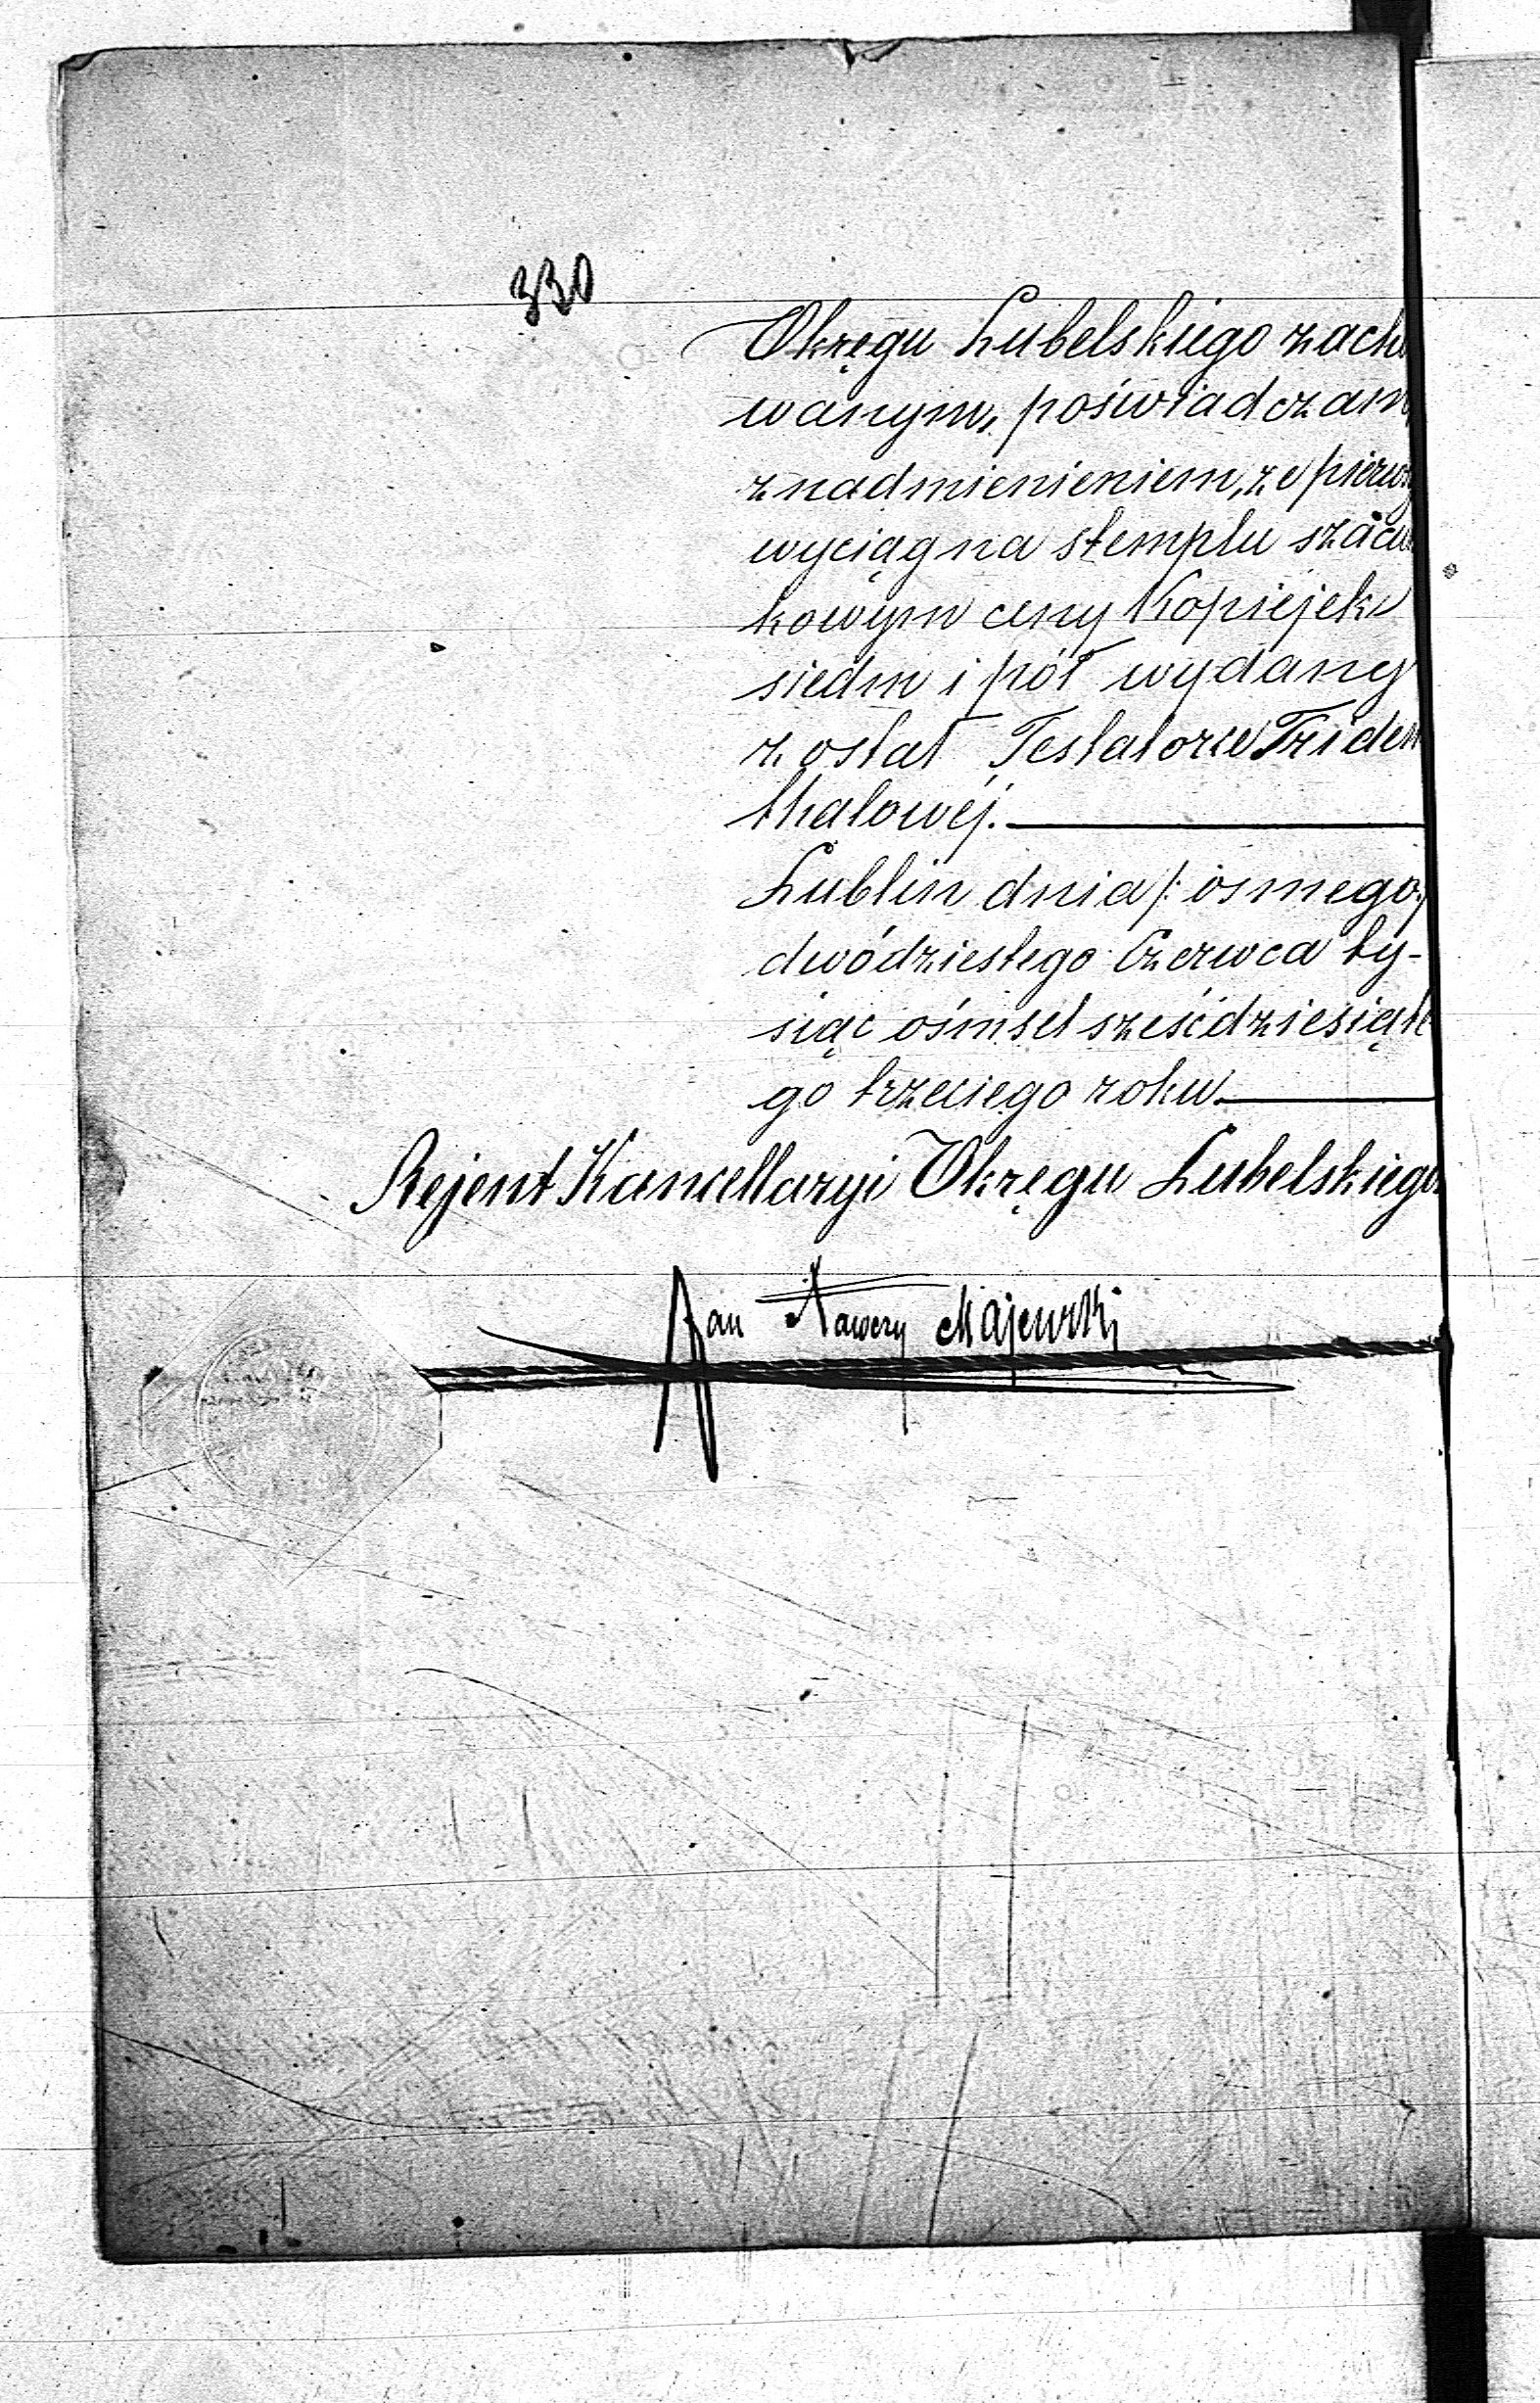 330
Okręgu Lubelskiego zacho
wanym, poświadczam
z nadmienieniem, że pierwszy
wyciąg na stemplu szacun
kowym ceny Kopiejek
siedm i pół wydany
został Testatorce Friden
thalowéj.
Lublin dnia /: osmego:/
dwódziestego Czerwca ty-
siąc ośmset sześćdziesiąte
go trzeciego roku
Rejent Kancellaryi Okręgu Lubelskiego
Jan Xawery Majewski